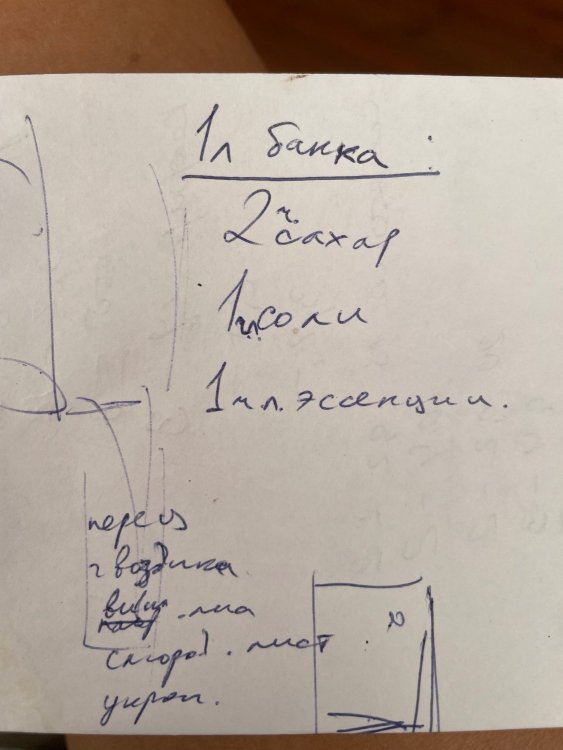 1л банка :
2 ч. сахар
1 ч.л. соли
1 ч л. эссенции.
перец
гвоздика
виш. лис
смород. лист
укроп.